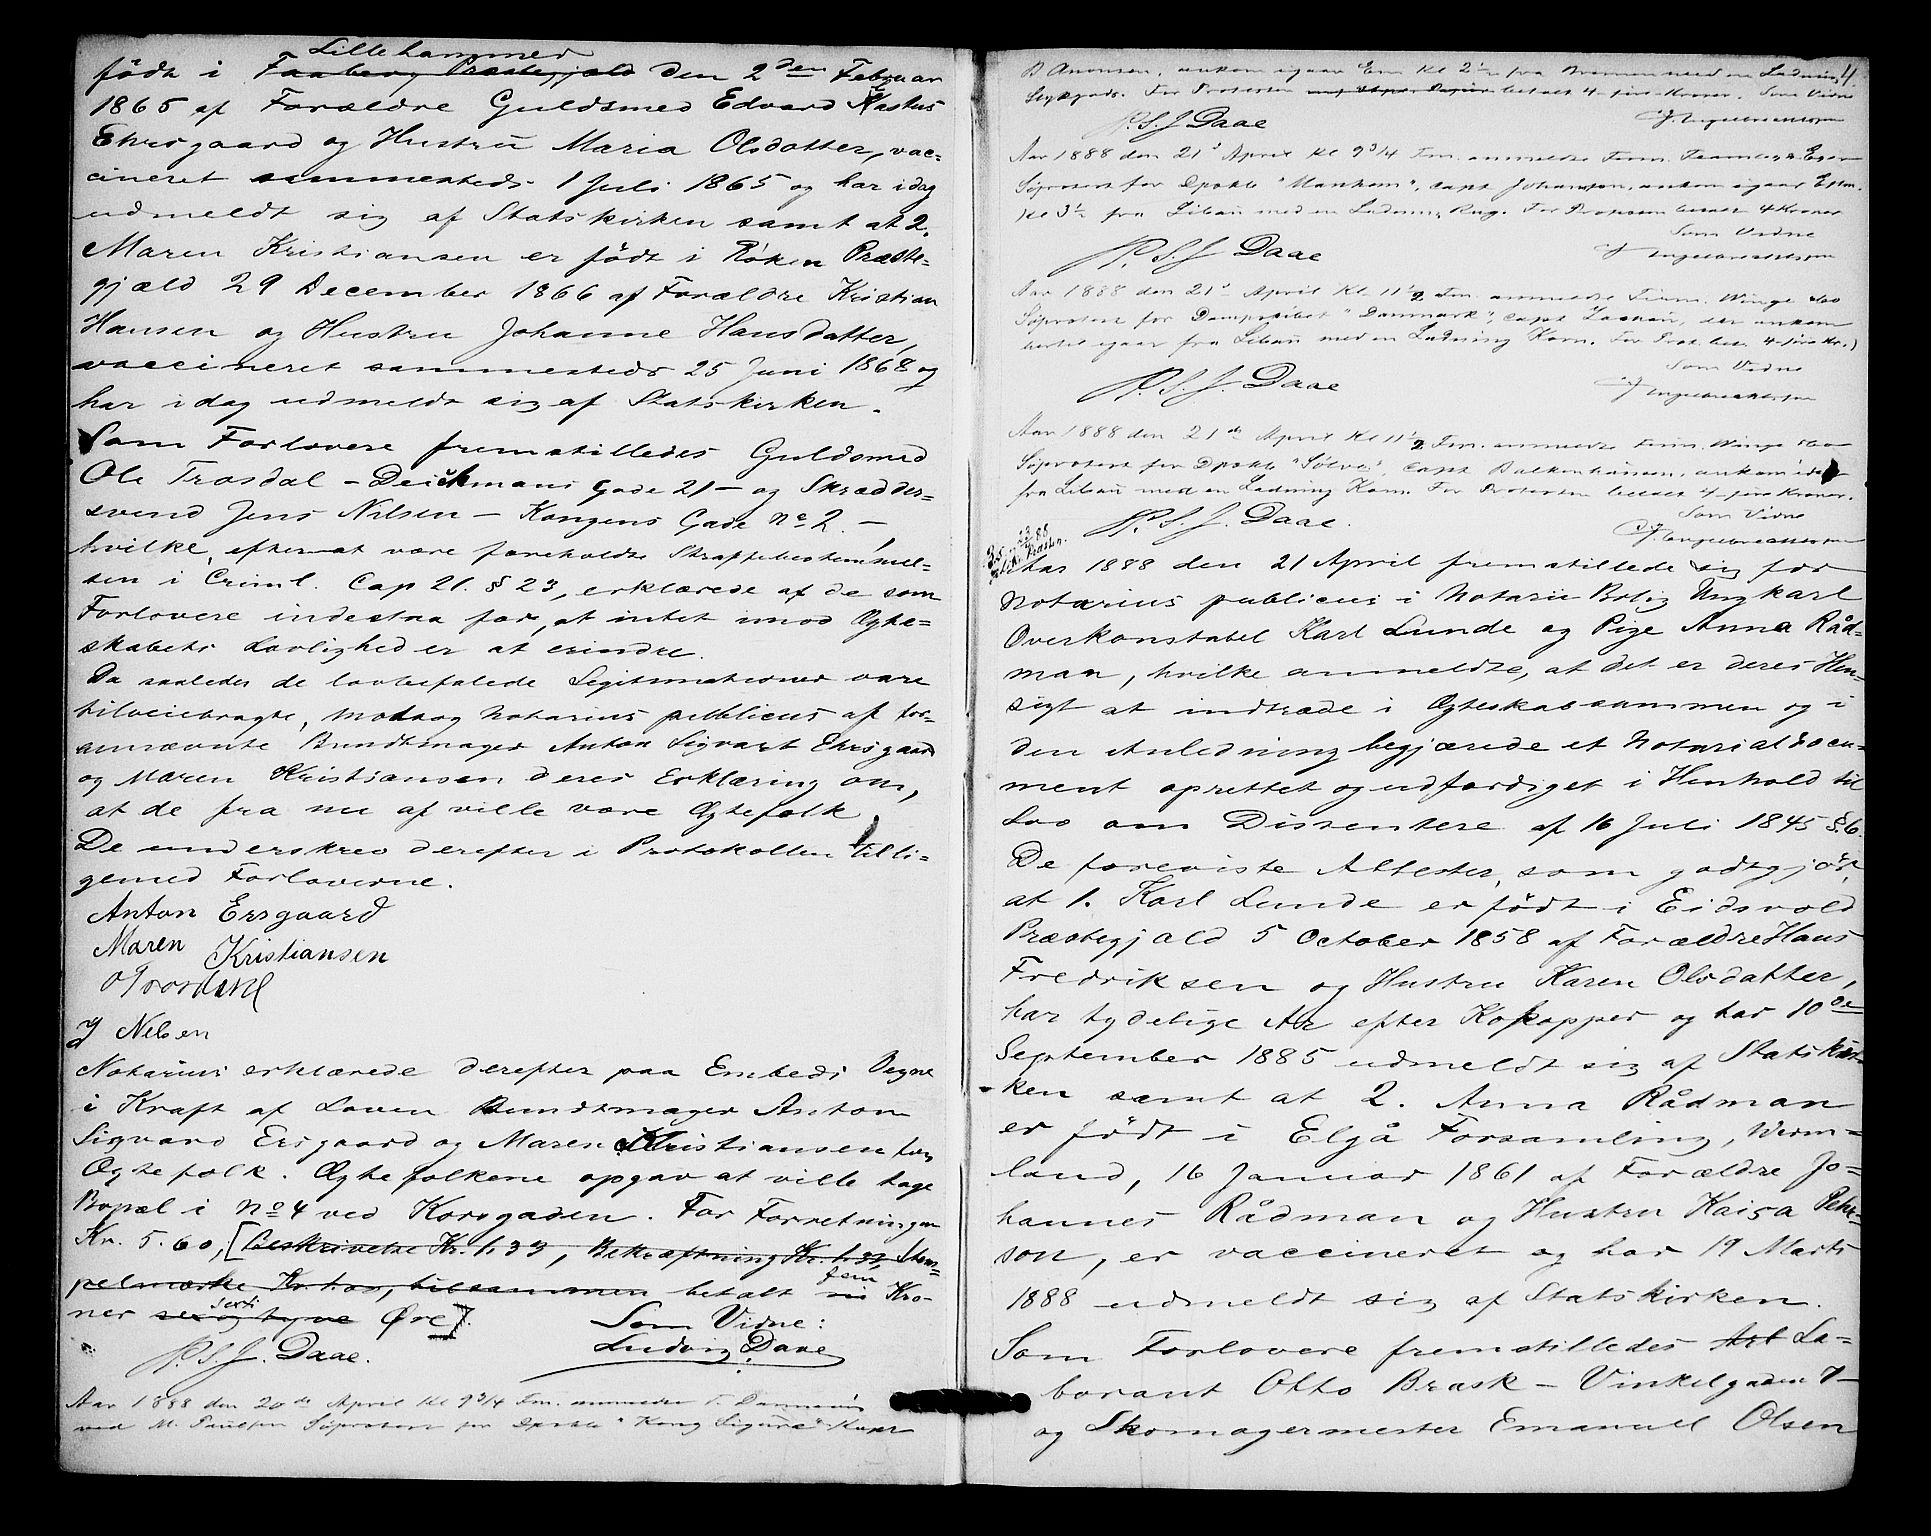 Lillehammer
födt i Faaberg Præstegjæld den 2den Februar
1865 af Forældre Guldsmed Edvard Rastus
Ehrsgaard og Hustru Maria Olsdatter, vac-
cineret sammesteds 1 Juli 1865 og har idag
udmeldt sig af Statskirken samt at 2.
Maren Kristiansen er födt i Röken Præste-
gjæld 29 December 1866 af Forældre Kristian
Hansen og Hustru Johanne Hansdatter,
vaccineret sammesteds 25 Juni 1868 og
har idag udmeldt sig af Statskirken.
Som Forlovere fremstilledes Guldsmed
Ole Trosdal – Deichmans Gade 21 – og Skrædder-
svend Jens Nilsen – Kongens Gade No 2. –
hvilke, efterat være foreholdt Straffebestemmel-
sen i Criml. Cap 21. § 23, erklærede af de som
Forlovere indestaa for, at intet imod Ægte-
skabets Lovlighed er at erindre.
Da saaledes de lovbefalede Legitimationer vare
tilveiebragte, modtog Notarius publicus af for-
annævnte Bundtmager Anton Sigvart Ehrsgaard
og Maren Kristiansen deres Erklæring om,
at de fra nu af ville være Ægtefolk
De underskrev derefter i Protokollen tilli-
gemed Forloverne.
Anton Ersgaard
Maren Kristiansen
J Nelsen
Notarius erklærede derefter paa Embeds Vegne
i Kraft af Loven Bundtmager Anton
Sigvard Ersgaard og Maren Kristiansen for
Ægtefolk. Ægtefolkene opgav at ville tage
Bopæl i No 4 ved Korsgaden. For Forretningen
Kr. 5.60, [Beskrivelse Kr. 1.33, Bekræftning Kr. 1.33, Stem-
pelmærke Kr. to, tilsammen betalt fem Kro-
ner sexti sex og tyve Øre].
Som Vidne:
P.S.J. Daae. Ludvig Daae
Aar 1888 den 20de April Kl 9 3/4 Fm. anmeldte T. Dannevig
ved M. Paulsen Söprotest for Dpskb "Kong Sigurd" Capt
4.
B Anonsen, ankom igaar Em Kl 2 1/2 fra Bremen med en Ladning
Stykgods. For Protesten betalt 4-fire-Kroner. Som Vidne
P.S.J Daae J. Ingelbrechtsen
Aar 1888 den 21s April Kl 9 3/4 Fm. anmeldte Firm. Fearnley & Eger
Söprotest for Dpskb "Manheim", Capt Johansson, ankom igaar Eftm.
Kl 3 1/2 fra Libau med en Ladning Rug. For Protesten betalt 4 Kroner
Som Vidne
P.S.J Daae J Ingelbrechtsen
Aar 1888 den 21s April Kl 11 1/2 Fm. anmeldte Firm. Winge & Co
Söprotest for Dampskibet "Danmark", Capt Zachau, der ankom
hertil igaar fra Libau med en Ladning Korn. For Prot. bet. 4-fire Kr.)
Som Vidne
P.S.J Daae J Ingelbrechtsen
Aar 1888 den 21de April Kl 11 1/2 Fm. anmeldte Firm. Winge & Co
Söprotest for Dpskb "Sölve", Capt Balkenhausen, ankom idag
fra Libau med en Ladning Korn. For Protesten betalt 4-fire Kroner.
Som Vidne
P.S.J. Daae. J. Ingelbrechtsen
Aar 1888 den 21 April fremstillede sig for
Notarius publicus i Notarii Bolig Ungkarl
Overkonstabel Karl Lunde og Pige Anna Råd-
man, hvilke anmeldte, at det er deres Hen-
sigt at indtræde i Ægteskab sammen og i
den Anledning begjærede et Notarialdocu-
ment oprettet og udfærdiget i Henhold til
Lov om Dissentere af 16 Juli 1845 §. 6.
De foreviste Attester, som godtgjör,
at 1. Karl Lunde er födt i Eidsvold
Præstegjæld 5 October 1858 af Forældre Hans
Fredriksen og Hustru Karen Olsdatter,
har tydelige Ar efter Kokopper og har 10de
September 1885 udmeldt sig af Statskir-
ken samt at 2. Anna Rådman
er födt i Elgå Forsamling, Werm-
land, 16 Januar 1861 af Forældre Jo-
hannes Rådman og Hustru Kaisa Pehr-
son, er vaccineret og har 19 Marts
1888 udmeldt sig af Statskirken.
Som Forlovere fremstilledes Art La-
borant Otto Brask – Vinkelgaden 7 –
og Skomagermester Emanuel Olsen